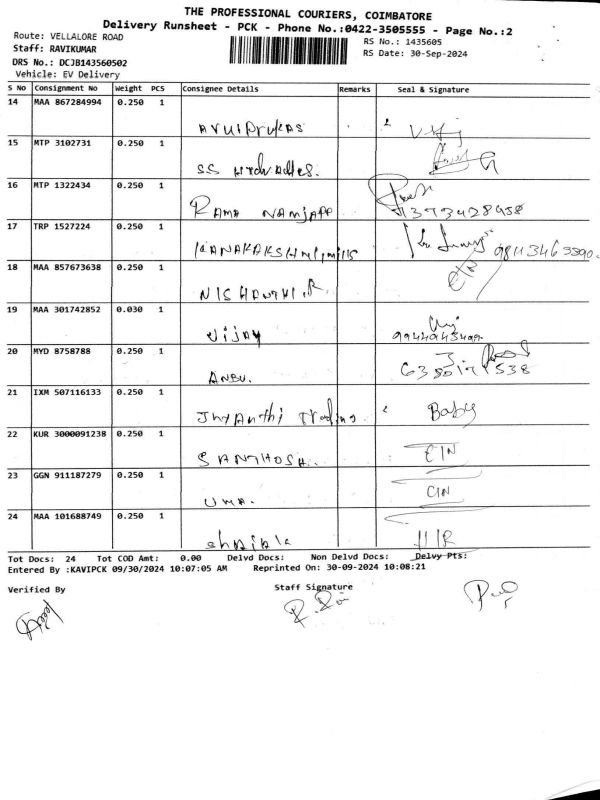 THE PROFESSIONAL COURIERS, COIMBATORE
Delivery Runsheet - PCK - Phone No.:0422-3505555 - Page No.:2
Route: VELLALORE ROAD
RS No.: 1435605
Staff: RAVIKUMAR
RS Date: 30-Sep-2024
DRS No.: DCJB143560502
Vehicle: EV Delivery
S No Consignment No Weight PCS Consignee Details Remarks Seal & Signature
14 MAA 867284994 0.250 1
15 MTP 3102731 0.250 1
SS
16 MTP 1322434 0.250 1
RAMA NAMJAPP
17 TRP 1527224 0.250 1
18 MAA 857673638 0.250 1
NISHANTHI.R
CIN
19 MAA 301742852 0.030 1
VIJAY
20 MYD 8758788 0.250 1
ANBU.
21 IXM 507116133 0.250 1
Trading Baby
22 KUR 3000091238 0.250 1
SANTHOSH. CIN
23 GGN 911187279 0.250 1
UMA. CIN
24 MAA 101688749 0.250 1
Tot Docs: 24 Tot COD Amt: 0.00 Delvd Docs: Non Delvd Docs: Delvy Pts:
Entered By :KAVIPCK 09/30/2024 10:07:05 AM Reprinted On: 30-09-2024 10:08:21
Verified By Staff Signature